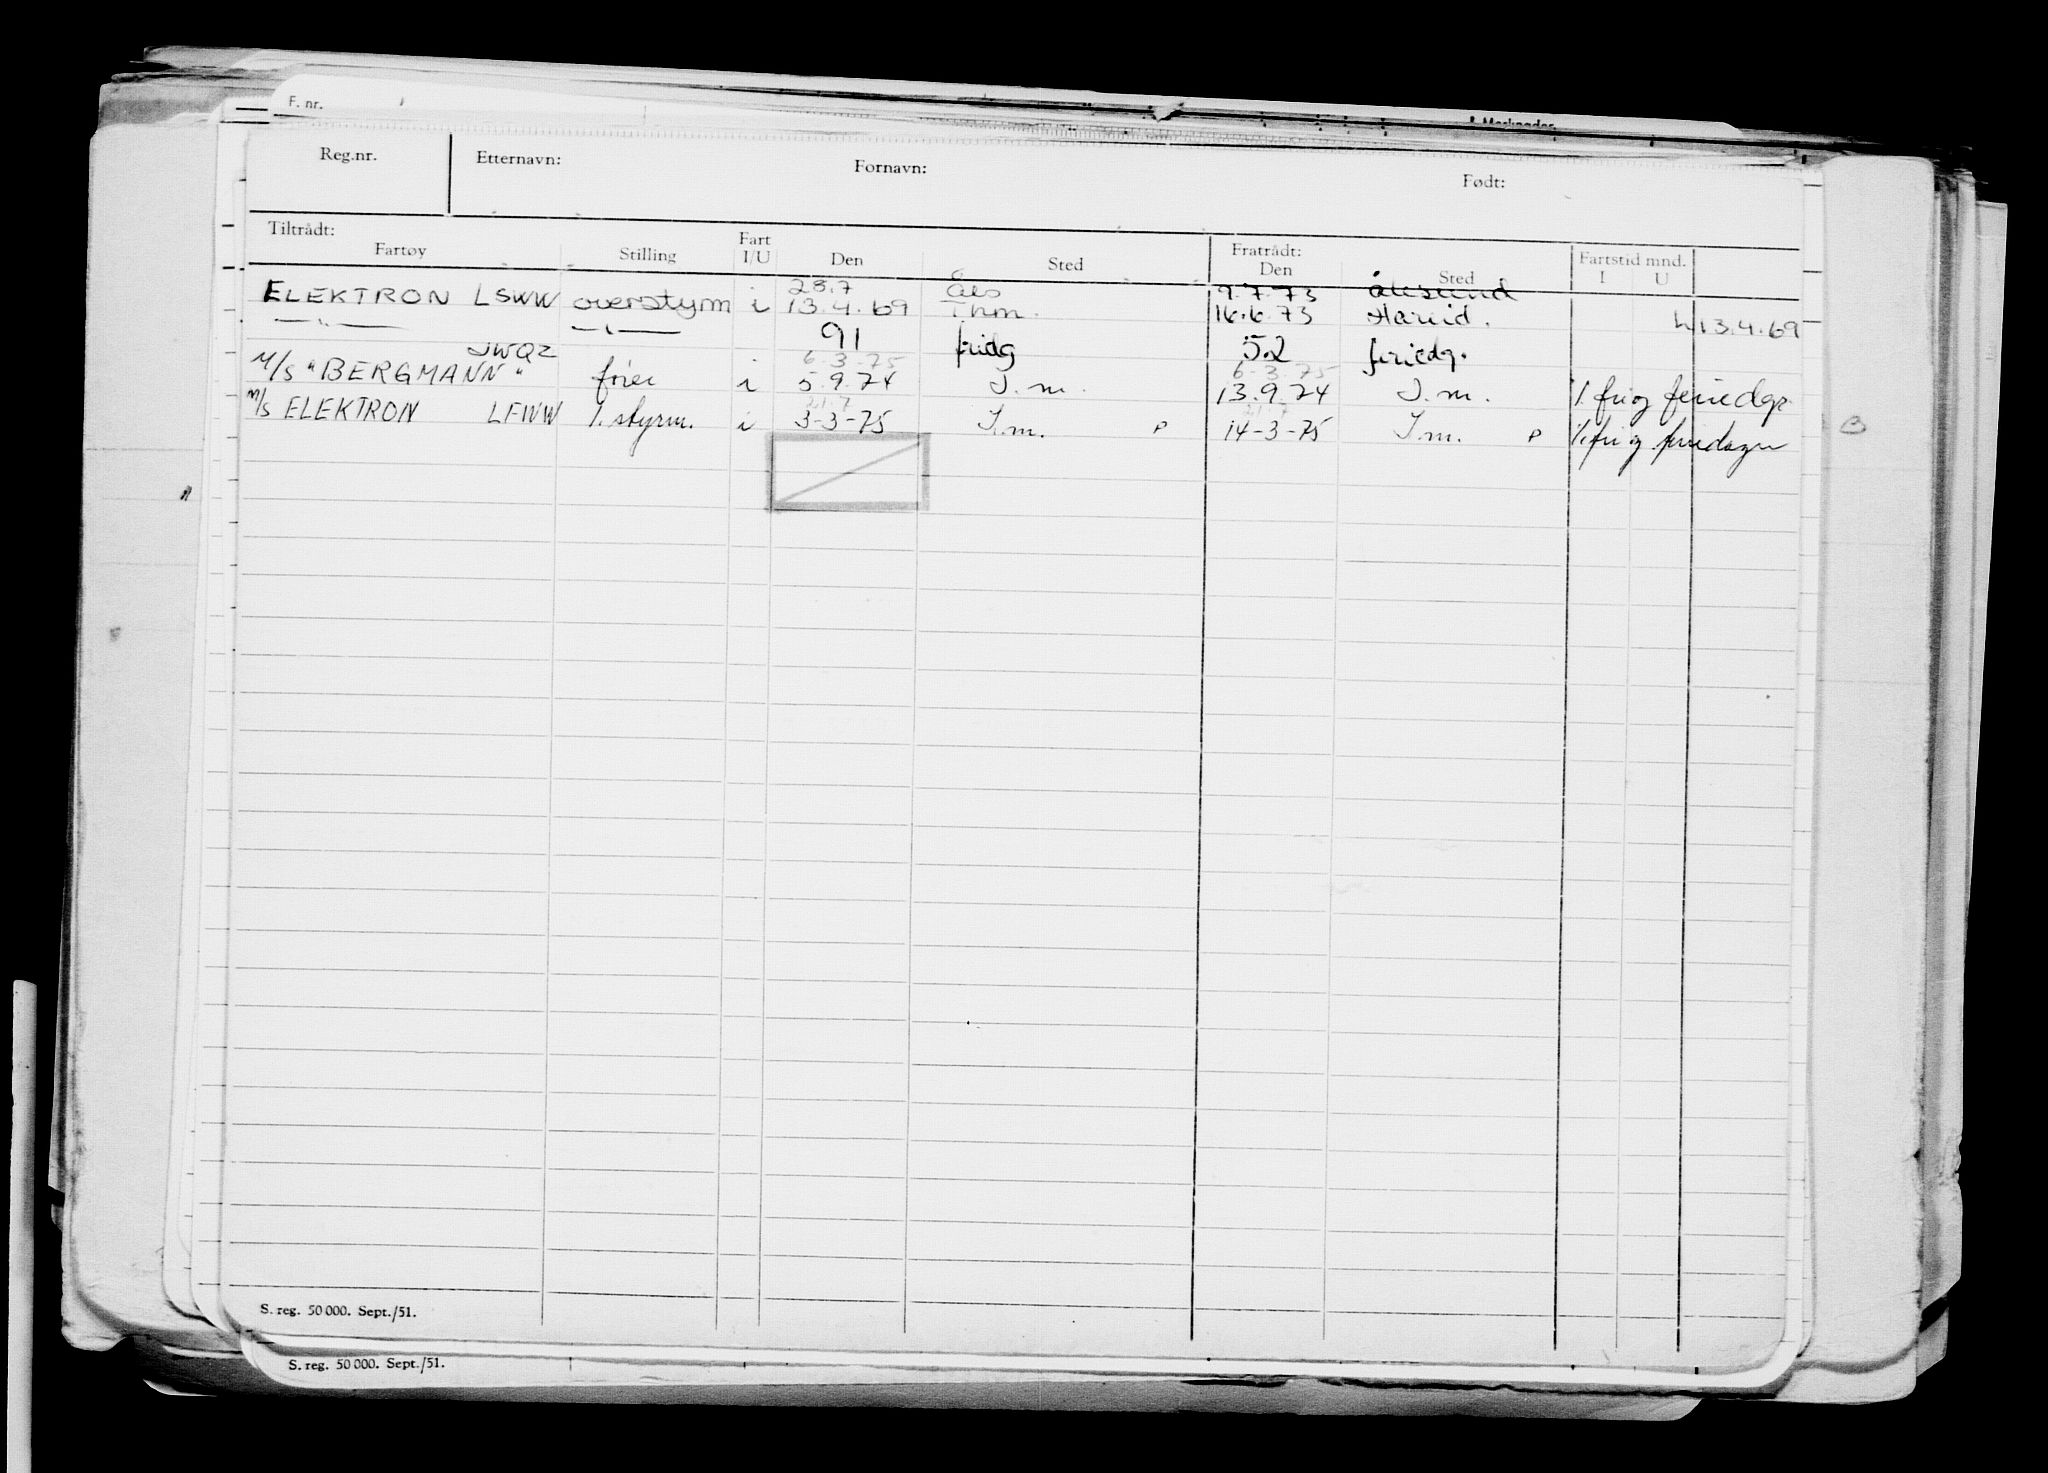 F. nr.
Reg.nr. Etternavn: Fornavn: Født:
Tiltrådt: Fart Fratrådt: Fartstid mnd.
Fartøy Stilling I/U Den Sted Den Sted I U
28.7 Åls 9.7.73 Ålesund
ELEKTRON LSWW overstyrm i 13.4.69 Thm. 16.6.73 Hareid. 13.4.69
—"— —"— 91 fridg 52 feriedg.
JWQZ 6-3-75 6-3-75
M/S "BERGMANN" fører i 5.9.74 T.m. 13.9.74 T.m. ⁒ fri og feriedgr
21.7 21.7
M/S ELEKTRON LFWW 1. styrm. i 3-3-75 T.m. P 14-3-75 T.m. P ⁒ fri og feriedager
S. reg. 50 000. Sept./51.
S. reg. 50 000. Sept./51.